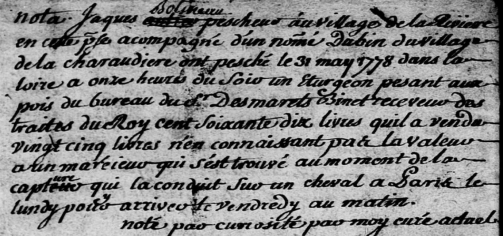 Bolineau
nota Jaques pescheur au village de la Riviere
en cette psse acompagné d'un nommé Dabin du village
de la charaudiere ont pesché le 31 may 1778 dans la
loire a onze heures du soir un Eturgeon pesant au
pois du bureau du Sr Desmarets Binet receveur des
traites du Roy cent soixante dix livres quil a vendu
vingt cinq livres n'en connaissant pas la valeur
a un mareieur qui s'est trouvé au moment de la
capture qui la conduit sur un cheval a Paris le
lundy pour arriver le vendredy au matin.
noté par curiosité par moy curé actuel